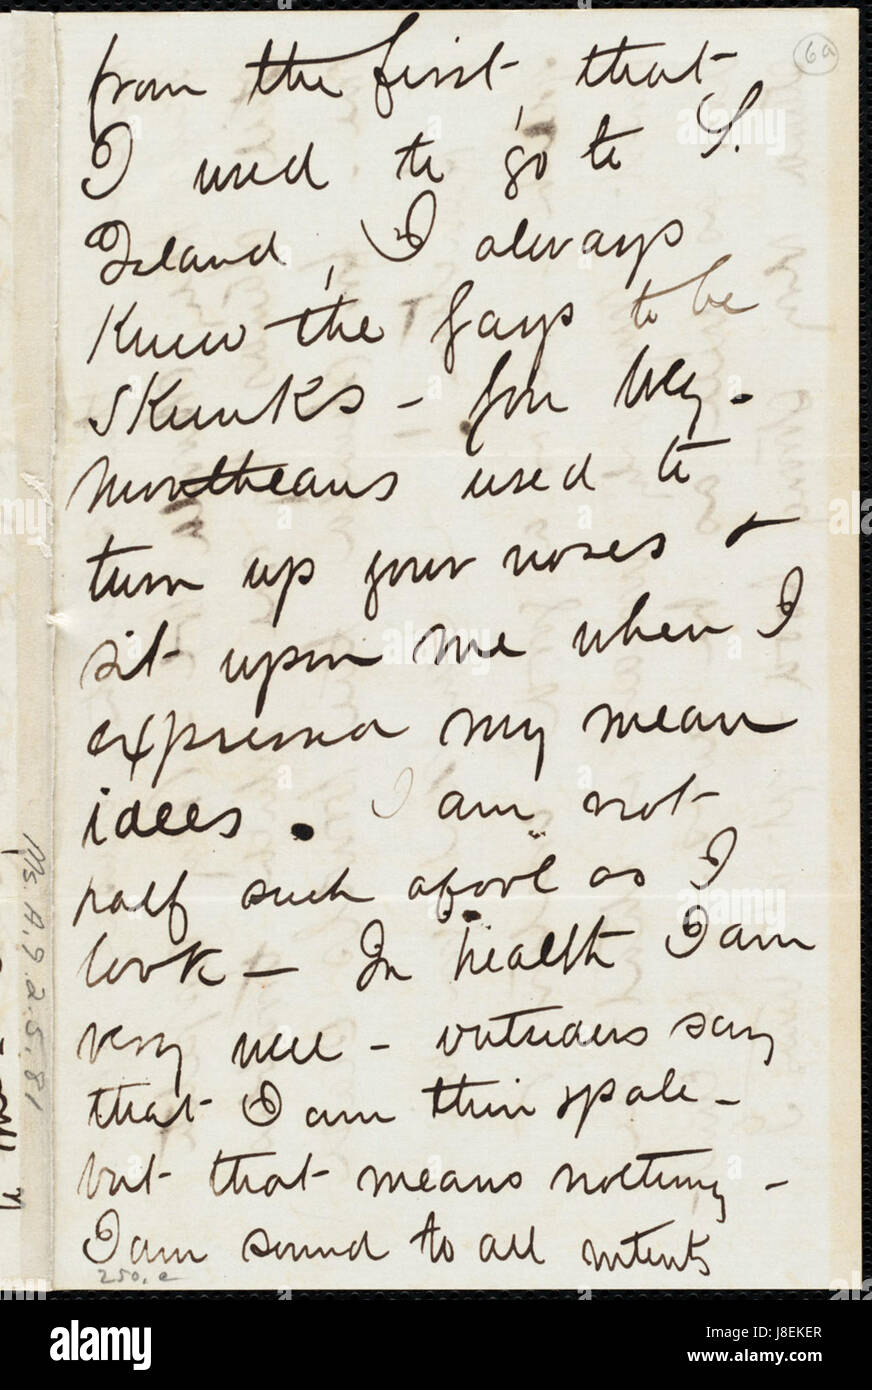 6a
from the first, that
I used to go to S.
Island, I always
Knew the Gays to be
Skunks - for Wey-
moutheans used to
turn up your noses &
sit upon me when I
expressed my mean
idees. I am not
half such a fool as I
look - In health I am
very well - outsiders say
that I am thin & pale -
but that means nothing -
I am sound to all intents
250, e
Ms. A.9.2.5.81
alamy
Image ID: J8EKER
www.alamy.com